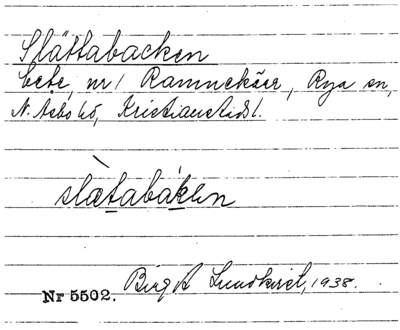 Slättabacken
bete, nr 1 Ramnekärr, Rya sn,
N. Åsbo hd, Kristianstads l.
slætabaken
Nr 5502. Birgit Lundkvist, 1938.